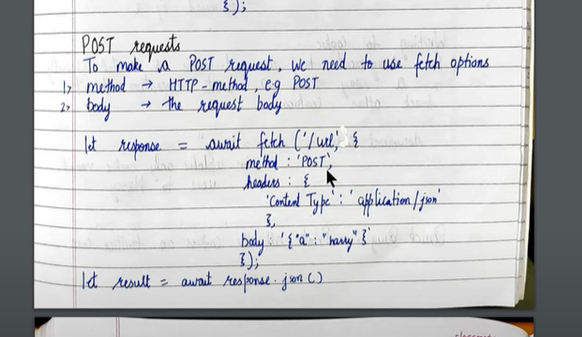 });
POST requests
To make a POST request, we need to use fetch options
1> method → HTTP-method, e.g POST
2> body → the request body
let response = await fetch ('/url', {
method : 'POST',
headers : {
'Content Type' : 'application/json'
},
body : '{"a" : "harry"}'
});
let result = await response.json()
classmate